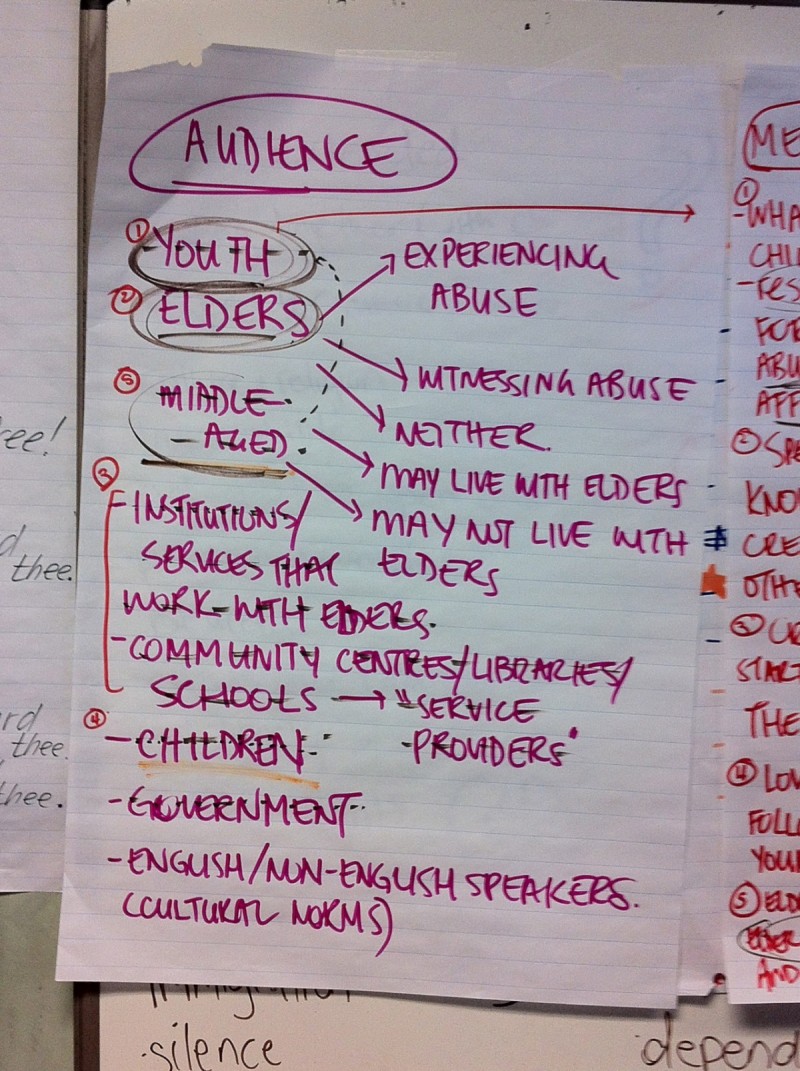 AUDIENCE
① YOUTH
② ELDERS
EXPERIENCING
ABUSE
WITNESSING ABUSE
NEITHER.
⑤ MIDDLE-
-AGED.
MAY LIVE WITH ELDERS
MAY NOT LIVE WITH
ELDERS
③
- INSTITUTIONS/
SERVICES THAT
WORK WITH ELDERS.
- COMMUNITY CENTRES/LIBRARIES/
SCHOOLS → "SERVICE
PROVIDERS"
④
- CHILDREN
- GOVERNMENT.
- ENGLISH/NON-ENGLISH SPEAKERS.
(CULTURAL NORMS)
thee.
thee.
thee.
①
-WHA
CHIL
FOR
ABU
AFF
② SPE
KNOW
CRE
OTHE
③
START
THE
④ LOV
FOLL
YOU
⑤ ELD
AND
silence
depend